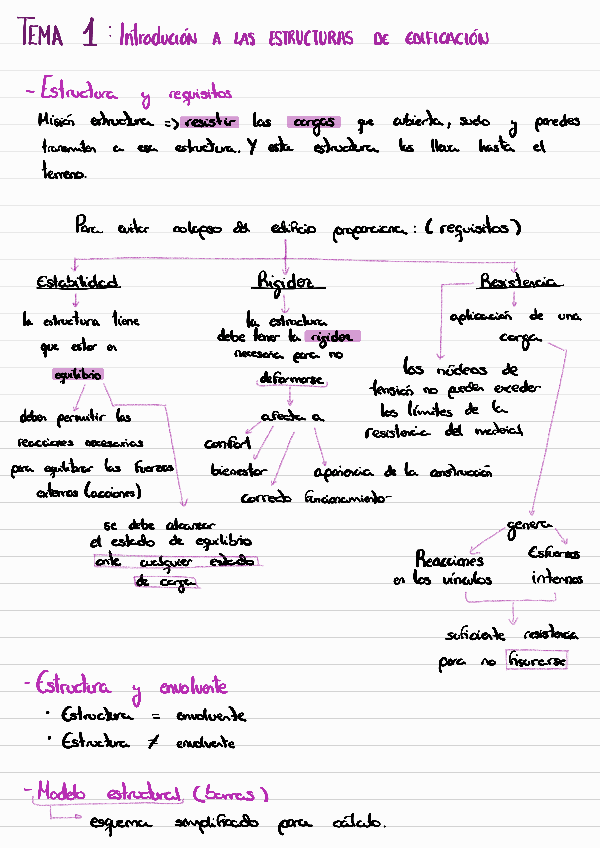 TEMA 1: Introducción A LAS ESTRUCTURAS DE EDIFICACIÓN
- Estructura y requisitos
Misión estructura => resistir las cargas que cubierta, suelo y paredes
transmiten a esa estructura. Y esta estructura las lleva hasta el
terreno.
Para evitar colapso del edificio proporciona: (requisitos)
Estabilidad
la estructura tiene
que estar en
equilibrio
deben permitir las
reacciones necesarias
para equilibrar las fuerzas
externas (acciones)
se debe alcanzar
el estado de equilibrio
ante cualquier estado
de carga
Rigidez
la estructura
debe tener la rigidez
necesaria para no
deformarse
afecta a
confort
bienestar
correcto funcionamiento
apariencia de la construcción
Resistencia
aplicación de una
carga
los núcleos de
tensión no pueden exceder
los límites de la
resistencia del material
genera
Reacciones
en los vínculos
Esfuerzos
internos
suficiente resistencia
para no fisurarse
- Estructura y envolvente
· Estructura = envolvente
· Estructura ≠ envolvente
- Modelo estructural (barras)
esquema simplificado para cálculo.